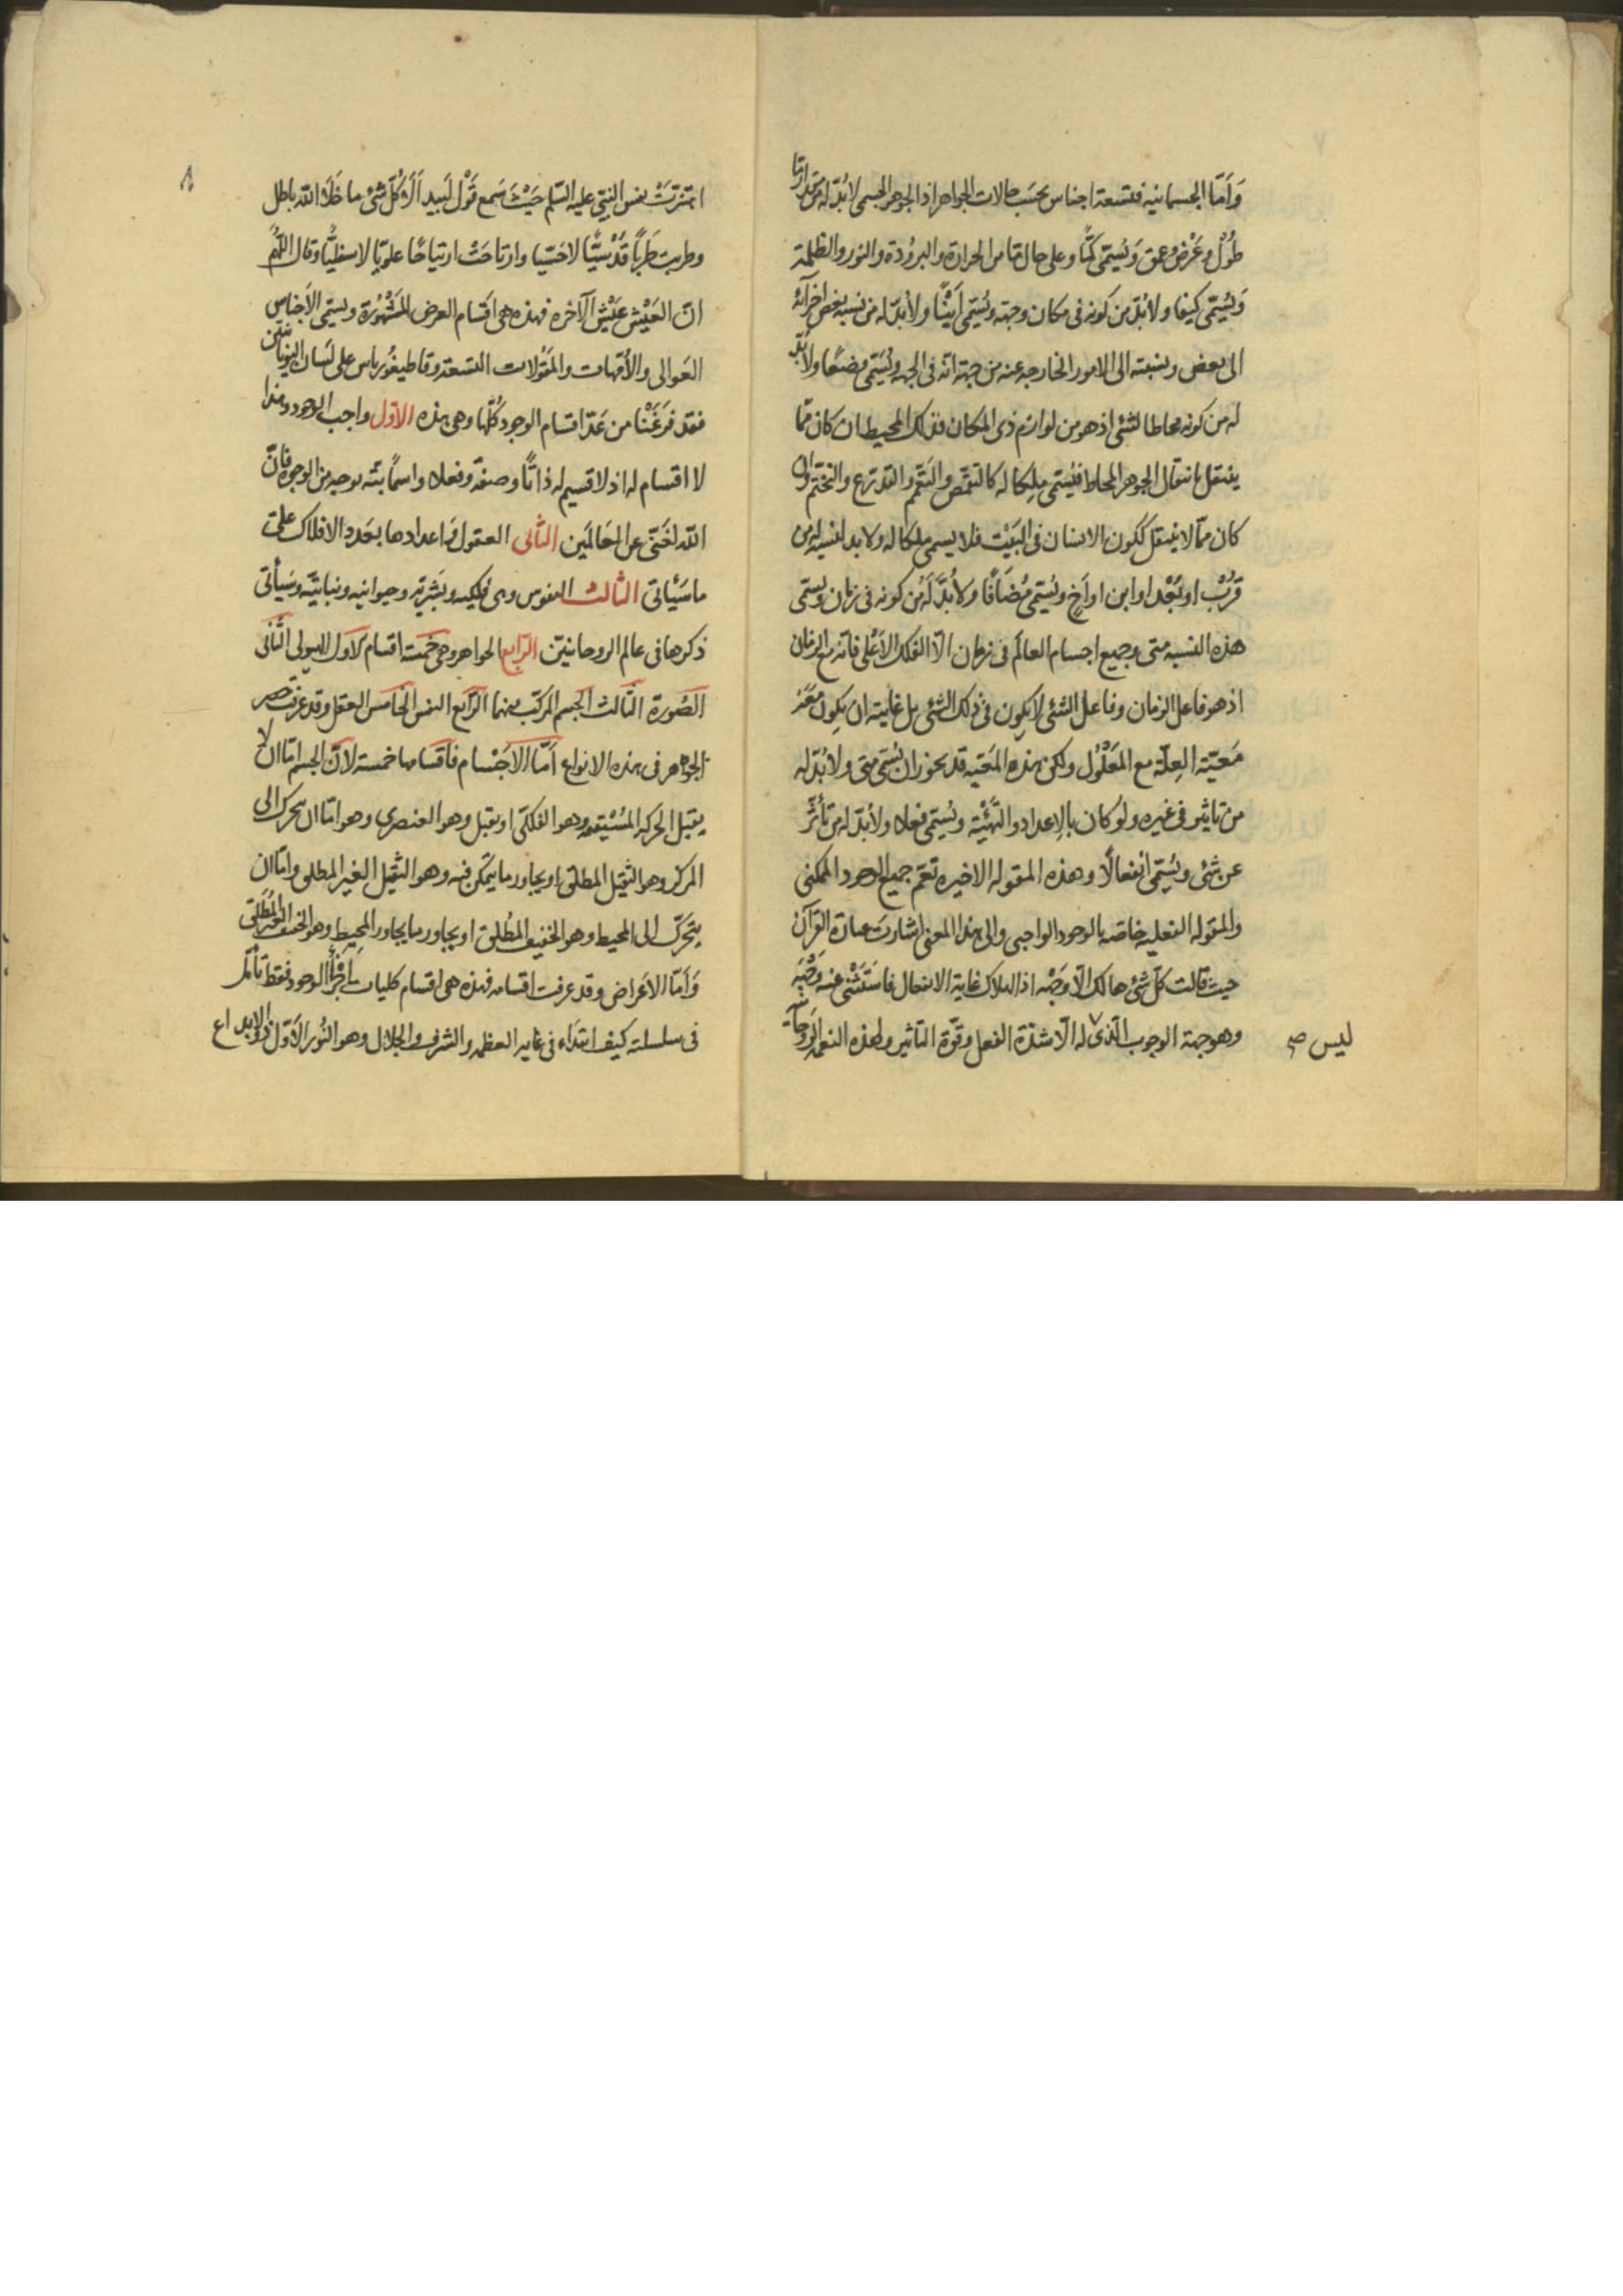 وَاَمّا الجسمانيه فتسعة اجناس بحَسَب حالات الجواهر اذ الجوهر الجسمى لا بُدّ له من مقدار ذا
طُوْل وعَرْض وعمق وَيُسَمّى كمًّا وعلى حال ما من الحرارة والبرُودة والنور والظلمة
وَيُسَمّى كيفا ولا بُدّ من كونه فى مكان وجهته ويُسَمّى اَيْنًا ولا بُدّ له من نسبه بعض اجزآئه
الى بعض ونسبته الى الامور الخارجه عنه من جهة انّه فى الجهه ويُسَمّى وضعًا ولا بُدّ
له من كونه محاطا لشئى اذ هو من لوازم ذى المكان فذلك المحيط ان كان ممّا
ينتقل بانتقال الجوهر المحاط فيُسَمّى مِلِكا له كالتقمّص والتعمّم والتدرّع والتختّم وان
كان ممّا لا ينتقل ككون الانسان فى البَيْت فلا يسمى ملكا له ولا بد لنسبه له من
قُرْب او بُعْد او ابن او اَخ ويُسَمّى مُضَافًا ولا بُدَّ لَهُ من كونه فى زمان ويسمّى
هذه النسبه متى وجميع اجسام العالَم فى زمان الّا الفلك الاَعْلى فانّه مع الزمان
اذ هو فاعل الزمان وفاعل الشئى لا يكون فى ذلك الشئى بل غايته ان يكون معَهُ
مَعيّته العِلّة مع المَعْلُول ولكن هذه المَعَيّه قد يجوز ان يُسَمّى متى ولا بُدّ له
من تاثير فى غيره ولو كان بالاِعداد والتَهْيئَة ويُسَمّى فعلا ولا بُدّ له من تأثّر
عن شئى ويُسَمّى انفعالًا وهذه المقوله الاخيره تعمّ جميع الوجود الممكنى
والمقوله الفعليه خاصّه بالوجود الواجبى والى هذا المعنى اشارت عبارة القرآن
حيث قالت كلّ شئ هالك الّا وَجْهه اذ الهلاك غاية الانفعال فاستَثْنى عنه وَجْهَه
وهو جهته الوجوب الّذى له الّا شدّة الفعل وقوّة التاثير ولهذه النعمه الرّوحانيّه
ليس صح
٨
اهتزّت نفس النبّى عليه السّلم حَيْثَ سَمع قَوْل لَبيد اَلَا كُلّ شئ ما خَلَا اللّه باطل
وطربت طَرَبًا قُدْسيًّا لا حَسّيا وارتاحَتْ ارتياحًا علويّا لا سفليًّا وقال اللّهُمّ
انّ العَيْش عَيْش الآخره فهذه هى اَقسام العرض المَشْهُورة ويسمّى الاَجناس
العَوالى والاُمّهات والمَقُولات التسعه وقاطيغُورياس على لسان اليونانيّين
فقد فرغْنَا من عَدّ اقسام الوجود كُلّها وهى هذه الاوّل واجب الوجود وهذا
لا اقسام له اذ لا قسيم له ذاتًا وصفةً وفعلا واسمًا بتّه بوجه من الوجوه فانّ
اللّه لغَنىّ عن العَالمَين الثّانى العقول وَاعدادها بعَدد الافلاك على
ما سَيَأتى الثّالث النفوس وهى فلكيه وبَشريّه وحيوانيه ونباتيَّه وسَيأتى
ذكرها فى عالم الروحانيّين الرّابع الجواهر وهى خمسَة اقسام الاَول الهيولى الثّانى
الصُورة الثّالث الجسم المركّب منهما الرّابع النفس الخامس العقل وقد عرفت حصر
الجواهر فى هذه الانواع اَمّا الاَجْسام فاقسامها خمسة لانّ الجسم امّا ان لا
يقبل الحركه المُسْتقيمه وهو الفلكىّ او يقبل وهو العنصرى وهو امّا ان يتحرك الى
المركز وهو الثقيل المطلق او يجاور ما يتمكّن فيه وهو الثقيل الغير المطلق وامّا ان
يتحرّك الى المحيط وهو الخفيف المُطلق او يجاور ما يجاور المحيط وهو الخفيف الغير المُطلق
وَاَمّا الاَعْراض وقد عرفت اقسامه فهذه هى اقسام كليات اجزأ الوجود فقط تأمّل
فى سلسلته كيف ابتدَاء فى غايه العظمه والشرف والجلال وهو النُور الاَوّل ذو الابداع